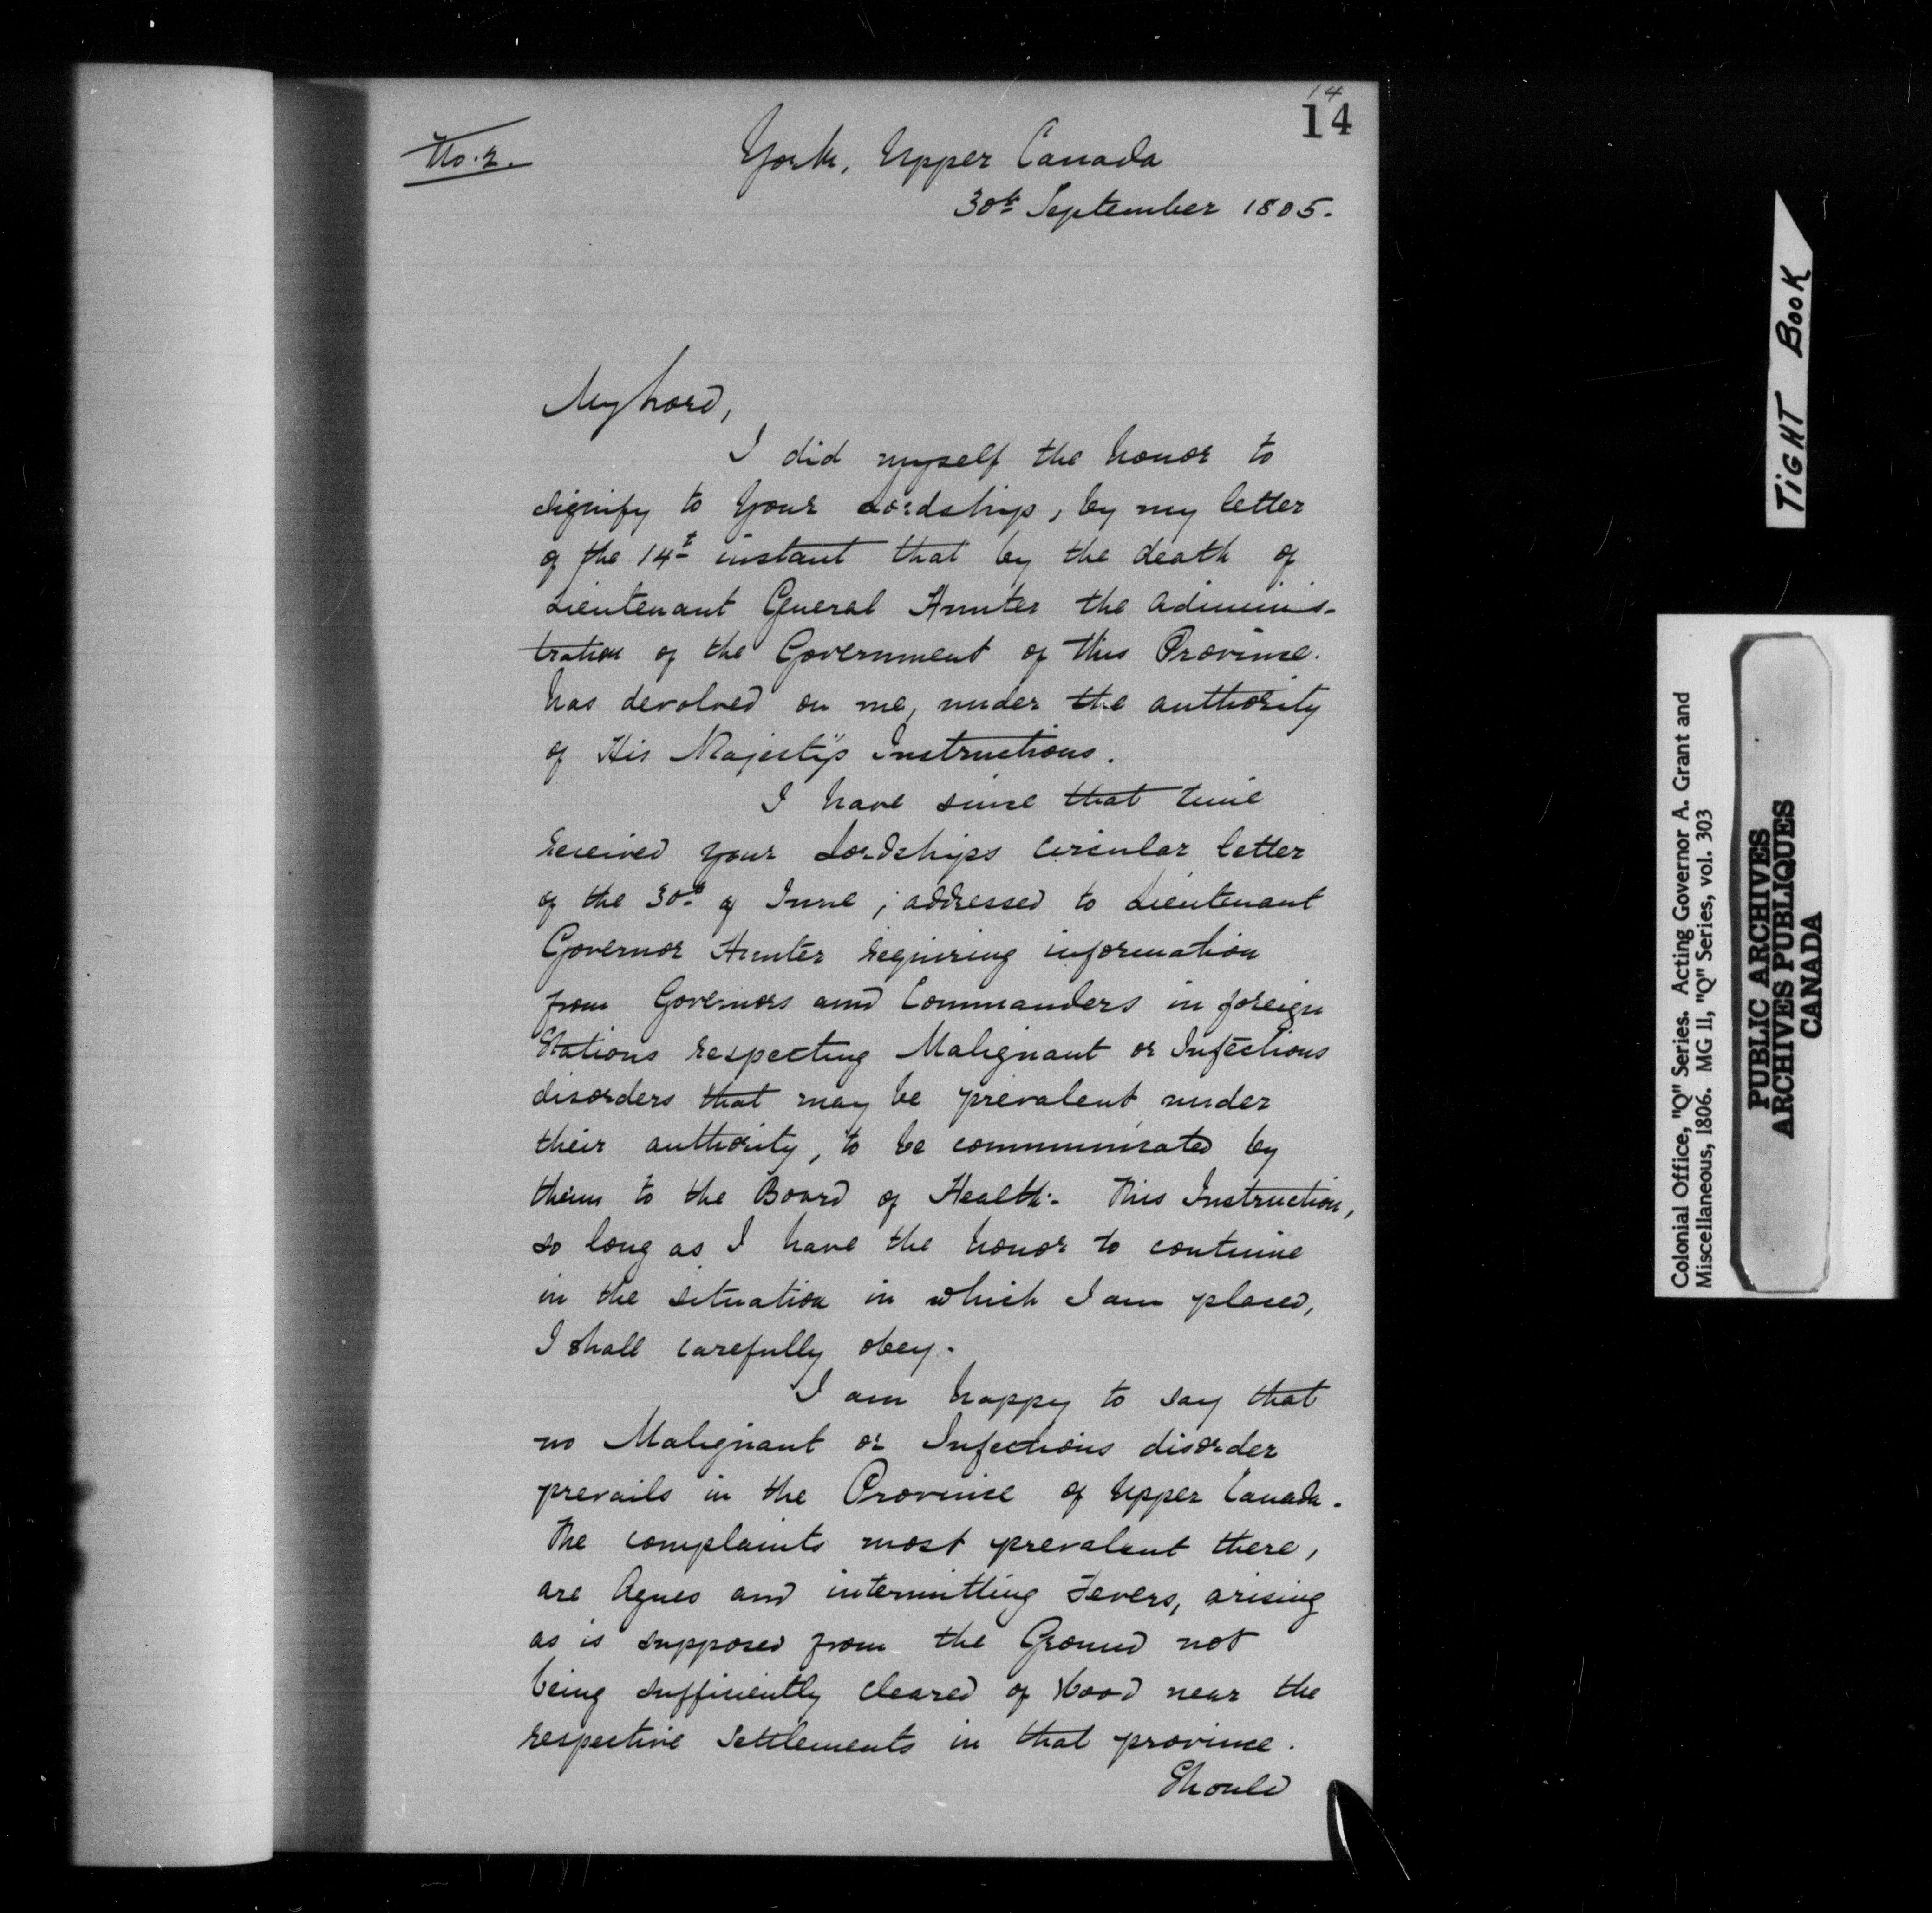 14
14
No. 2.
York, Upper Canada
30th September 1805.
My Lord,
I did myself the honor to
signify to Your Lordship, by my letter
of the 14t instant that by the death of
Lieutenant General Hunter the adminis-
tration of the Government of this Province.
has devolved on me, under the authority
of His Majesty's Instructions.
I have since that time
received your Lordships circular letter
of the 30th of June, addressed to Lieutenant
Governor Hunter requiring information
from Governors and Commanders in foreign
Stations respecting Malignant or Infectious
disorders that may be prevalent under
their authority, to be communicated by
them to the Board of Health. This Instruction,
so long as I have the honor to continue
in the situation in which I am placed,
I shall carefully obey.
I am happy to say that
no Malignant or Infectious disorder
prevails in the Province of Upper Canada.
The complaints most prevalent there,
are Agues and intermitting Fevers, arising
as is supposed from the Ground not
being sufficiently cleared of Wood near the
respective Settlements in that province.
Should
TIGHT BOOK
Colonial Office, "Q" Series. Acting Governor A. Grant and
Miscellaneous, 1806. MG 11, "Q" Series, vol. 303
PUBLIC ARCHIVES
ARCHIVES PUBLIQUES
CANADA